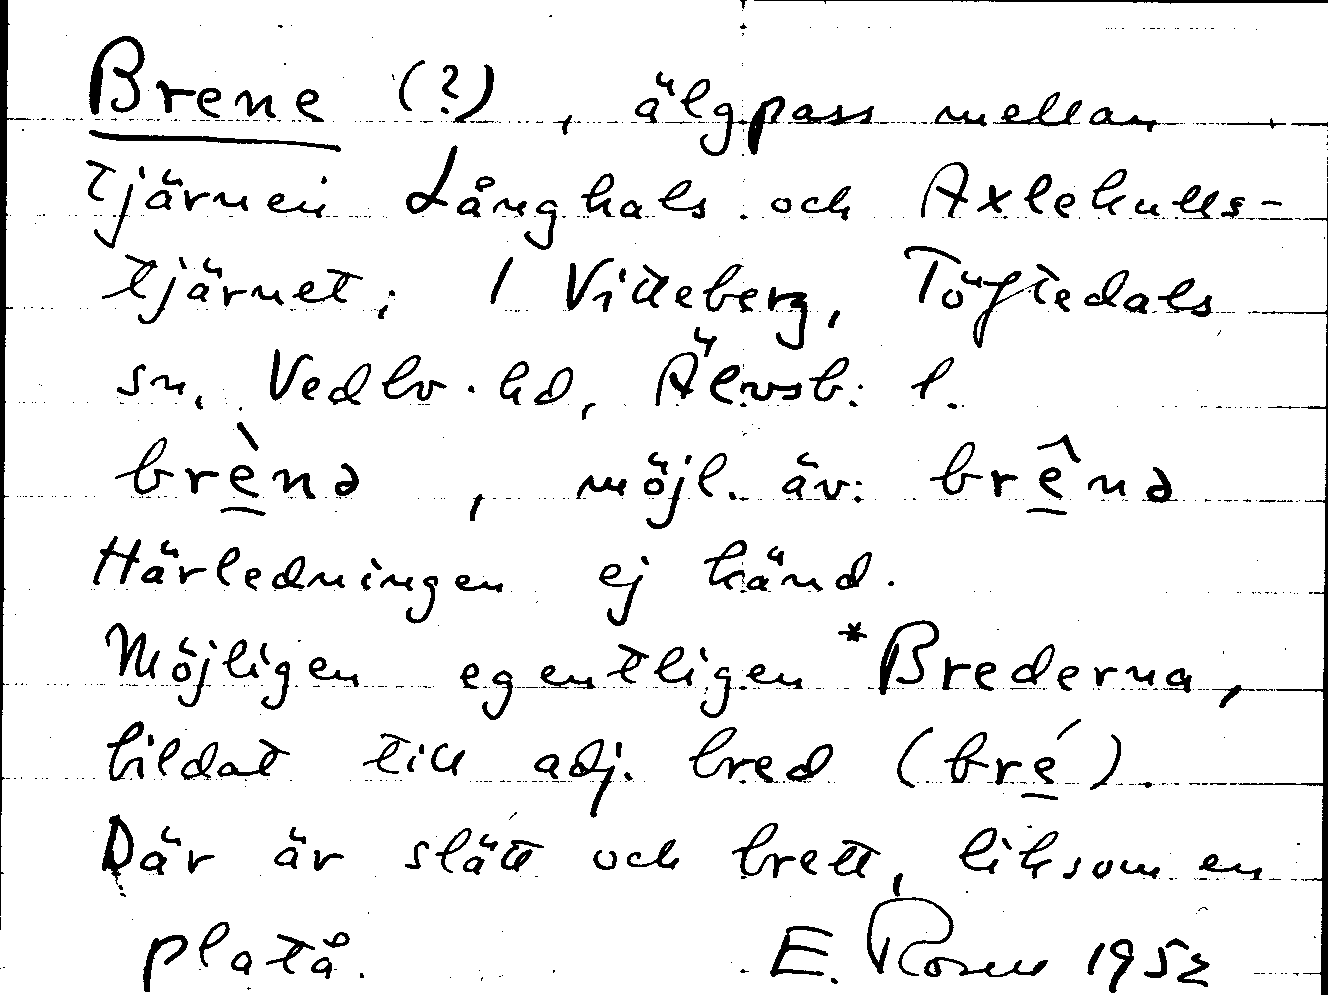 Brene (?), älgpass mellan
tjärnen Långhals och Axlekulls-
tjärnet; i Vitteberg, Töftedals
sn, Vedbo hd, Älvsb. l.
brè̱nə, möjl. äv: brê̱nə
Härledningen ej känd.
Möjligen egentligen *Brederna,
bildat till adj. bred (bré̱).
Där är slätt och brett, liksom en
platå. E. Rosell 1952